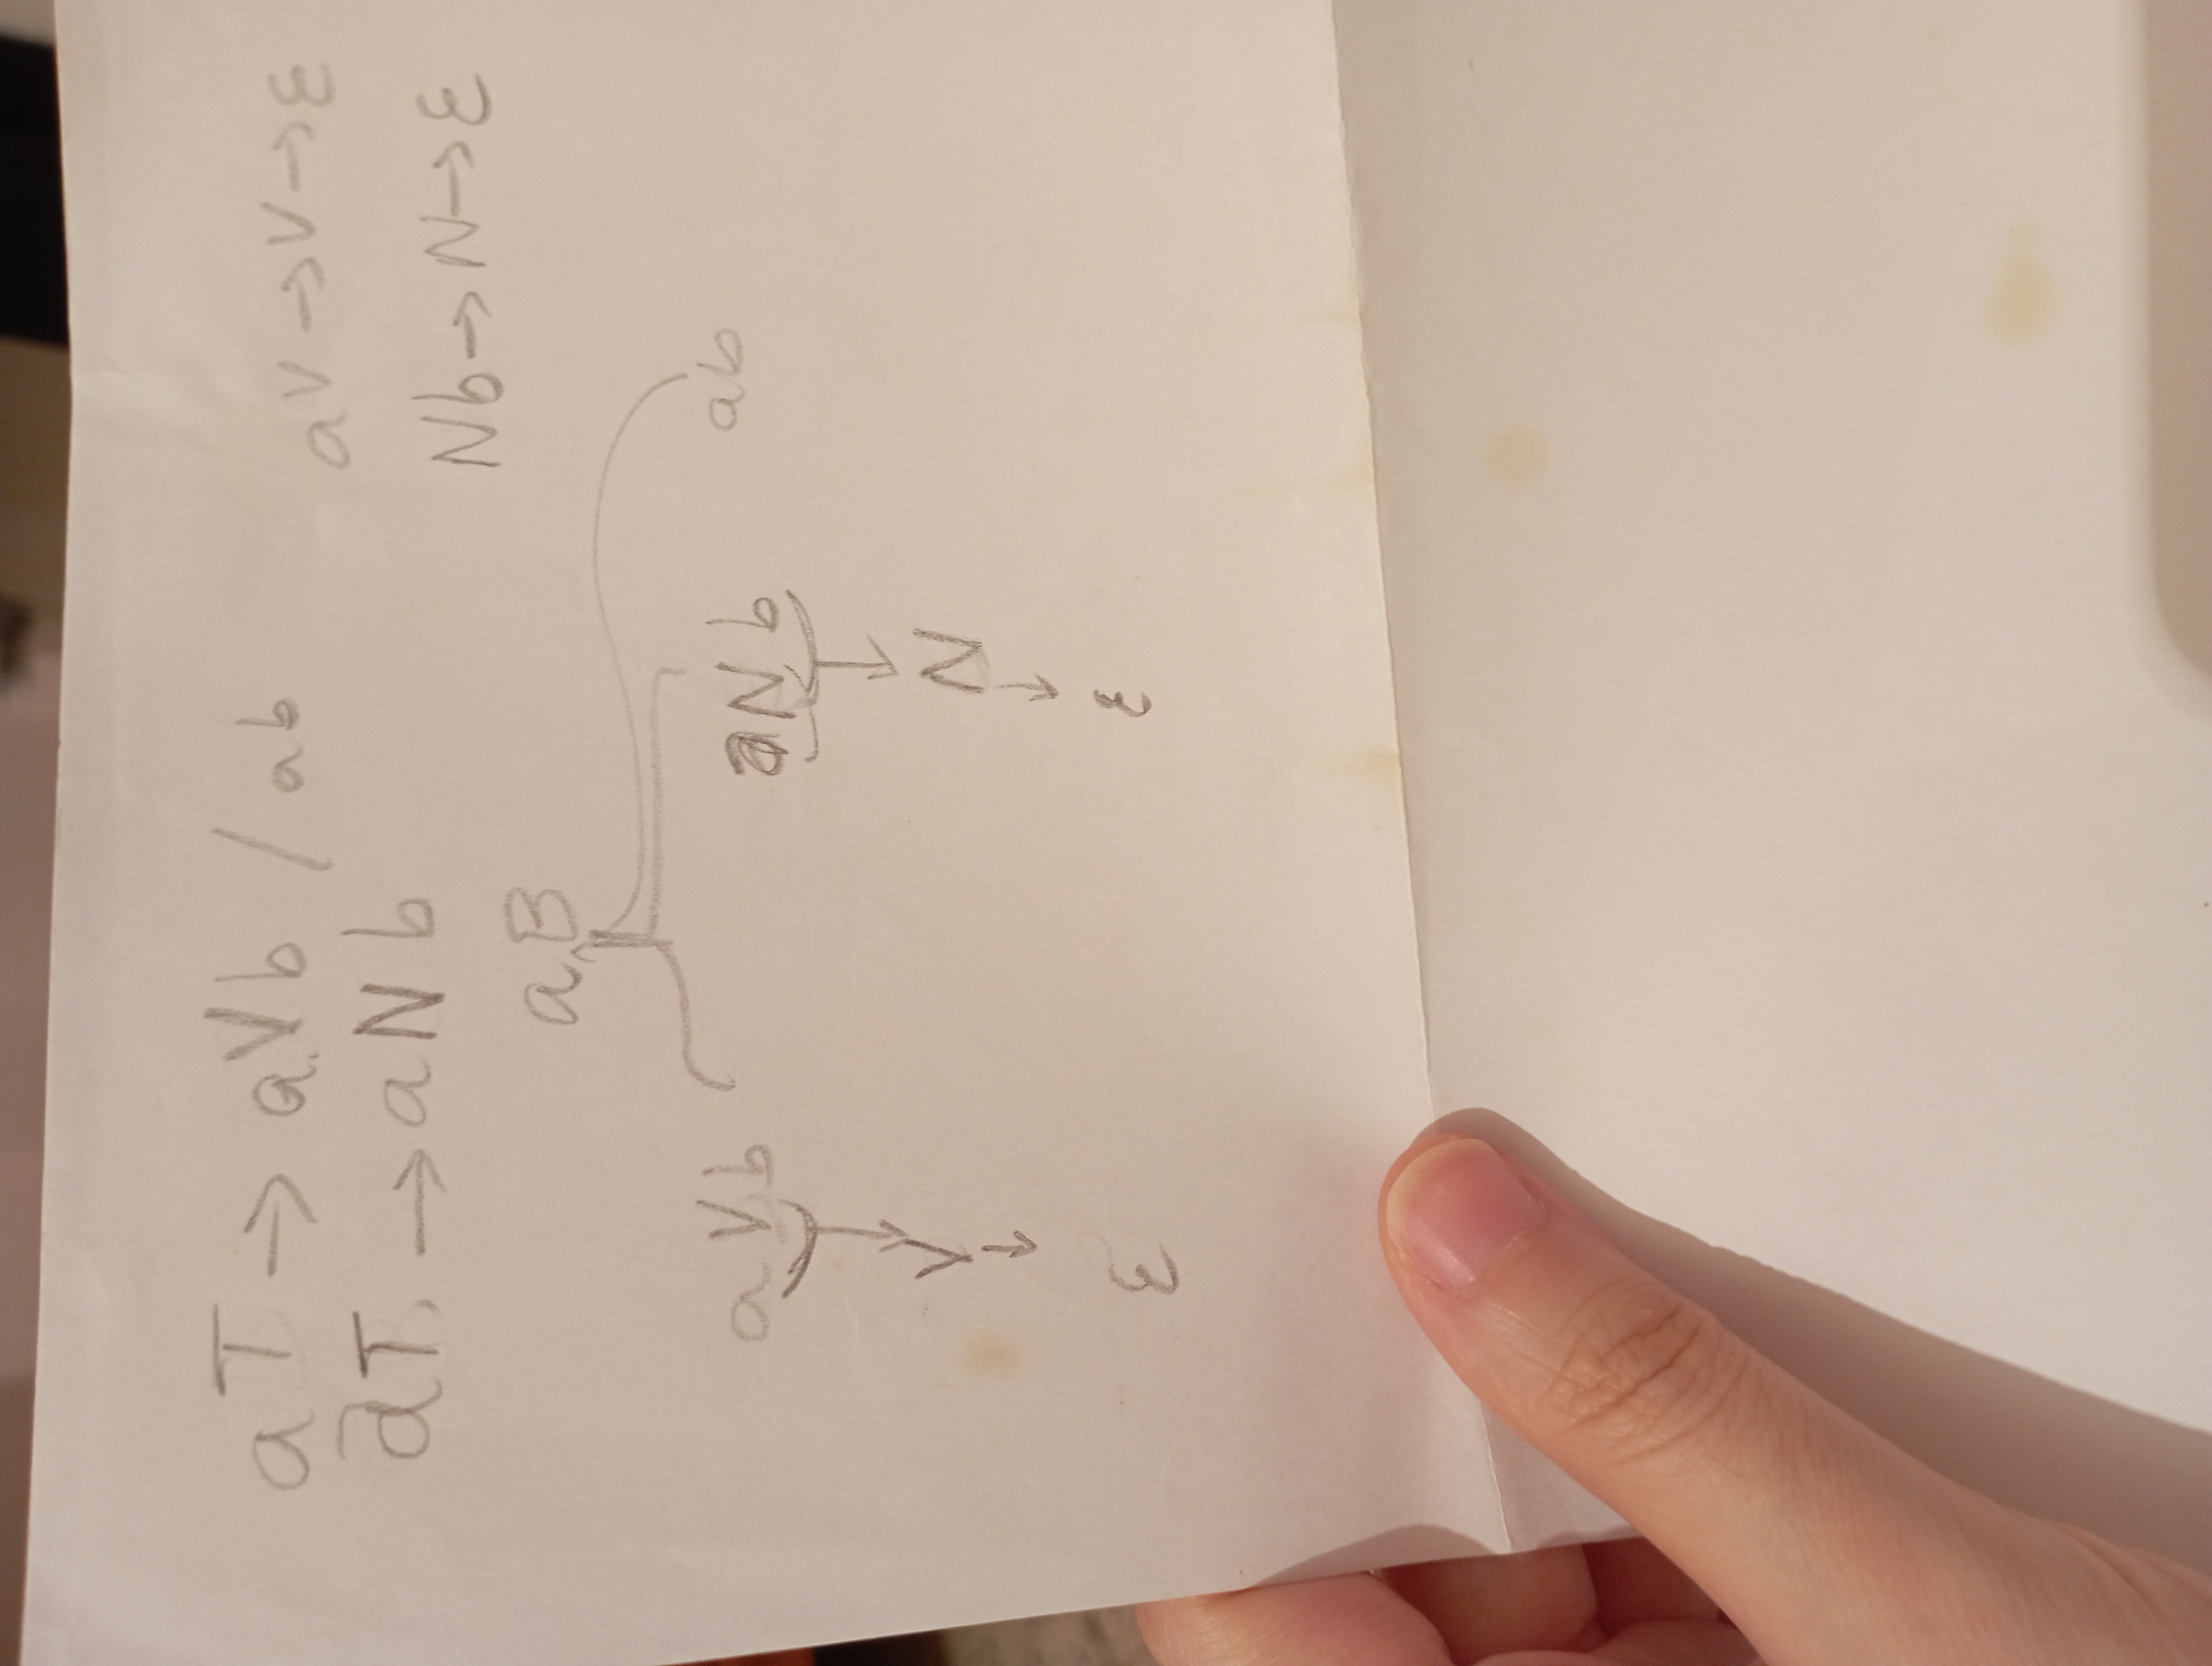 aT → aVb / ab
aT → aNb
aV → V → ε
Nb → N → ε
aB
aVb aNb ab
V N
ε ε